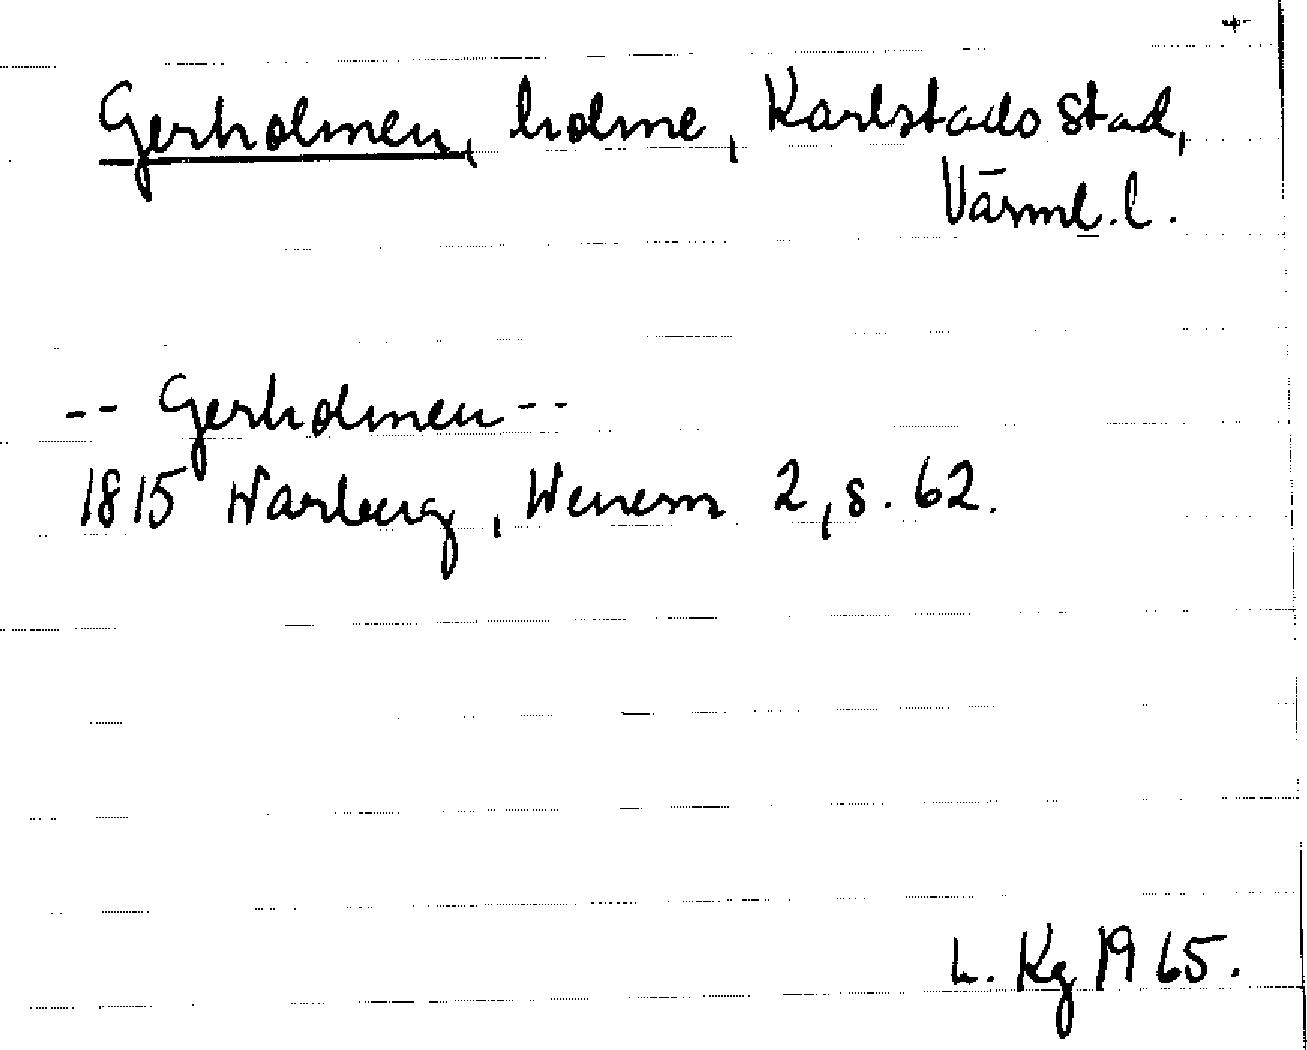 +
Gerholmen, holme, Karlstads stad,
Värml. l.
-- Gerholmen --
1815 Warberg, Wenern 2, s. 62.
L. Kg 1965.